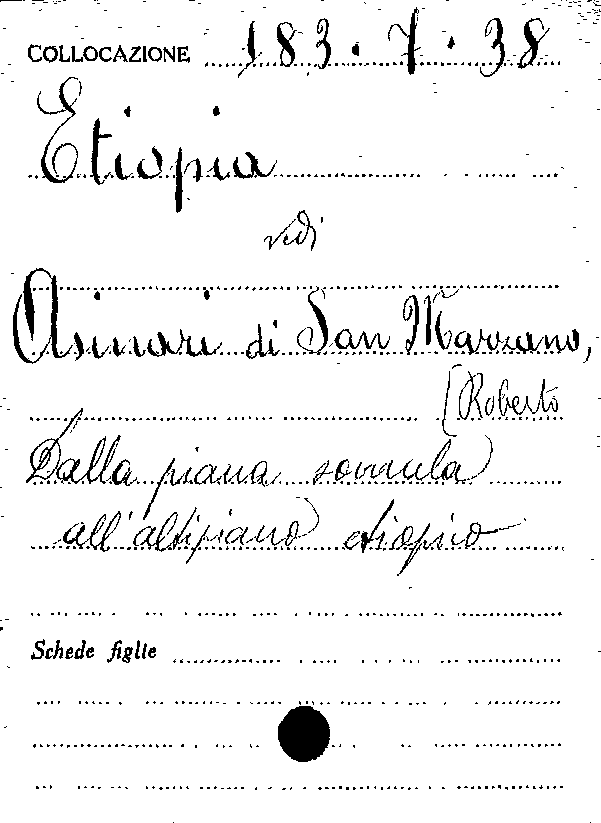 COLLOCAZIONE 183.7.38
Etiopia
vedi
Asinari di San Marzano,
[Roberto
Dalla piana somala
all'altipiano etiopico
Schede figlie